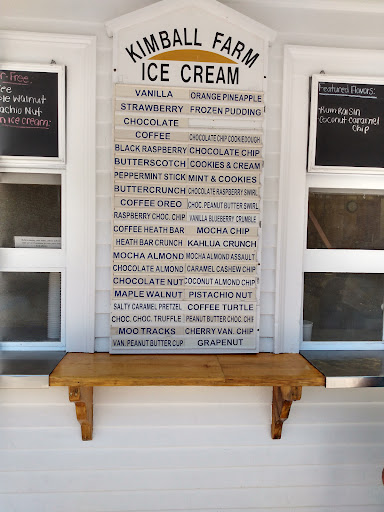 -Free:
ee
ple Walnut
tachio Nut
n ice cream:
KIMBALL FARM
ICE CREAM
VANILLA
ORANGE PINEAPPLE
STRAWBERRY
FROZEN PUDDING
CHOCOLATE
COFFEE
CHOCOLATE CHIP COOKIE DOUGH
BLACK RASPBERRY
CHOCOLATE CHIP
BUTTERSCOTCH
COOKIES & CREAM
PEPPERMINT STICK
MINT & COOKIES
BUTTERCRUNCH
CHOCOLATE RASPBERRY SWIRL
COFFEE OREO
CHOC. PEANUT BUTTER SWIRL
RASPBERRY CHOC. CHIP
VANILLA BLUEBERRY CRUMBLE
COFFEE HEATH BAR
MOCHA CHIP
HEATH BAR CRUNCH
KAHLUA CRUNCH
MOCHA ALMOND
MOCHA ALMOND ASSAULT
CHOCOLATE ALMOND
CARAMEL CASHEW CHIP
CHOCOLATE NUT
COCONUT ALMOND CHIP
MAPLE WALNUT
PISTACHIO NUT
SALTY CARAMEL PRETZEL
COFFEE TURTLE
CHOC. CHOC. TRUFFLE
PEANUT BUTTER CHOC. CHIP
MOO TRACKS
CHERRY VAN. CHIP
VAN. PEANUT BUTTER CUP
GRAPENUT
Featured Flavors:
-Rum Raisin
-Coconut Caramel
Chip